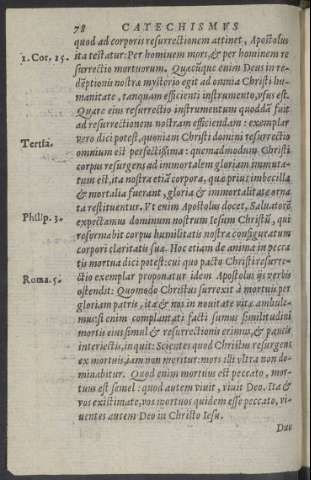 78 CATECHISMVS
quod ad corporis resurrectionem attinet, Apostolus
1. Cor. 15. ita testatur: Per hominem mors, & per hominem re
surrectio mortuorum. Quæcũque enim Deus in re-
dẽptionis nostræ mysterio egit ad omnia Christi hu-
manitate, tanquam efficienti instrumento, vsus est.
Quare eius resurrectio instrumentum quoddã fuit
ad resurrectionem nostram efficiendam: exemplar
vero dici potest, quoniam Christi domini resurrectio
Tertiã. omnium est perfectissima: quemadmodum Christi
corpus resurgens ad immortalem gloriam immuta-
tum est, ita nostra etiã corpora, quæ prius imbecilla
& mortalia fuerant, gloria & immortalitate orna-
ta restituentur. Vt enim Apostolus docet, Saluatorẽ
Philip. 3. expectamus dominum nostrum Iesum Christũ, qui
reformabit corpus humilitatis nostræ configuratum
corpori claritatis suæ. Hoc etiam de anima in pecca
tis mortua dici potest: cui quo pacto Christi resurre-
Roma. 5. ctio exemplar proponatur idem Apostolus ijs verbis
ostendit: Quomodo Christus surrexit à mortuis per
gloriam patris, ita & nos in nouitate vitæ ambule-
mus: si enim complantati facti sumus similitudini
mortis eius simul & resurrectionis erimus, & paucis
interiectis, inquit: Scientes quod Christus resurgens
ex mortuis, iam non moritur: mors illi vltra non do-
minabitur. Quod enim mortuus est peccato, mor-
tuus est semel: quod autem viuit, viuit Deo. Ita &
vos existimate, vos mortuos quidem esse peccato, vi-
uentes autem Deo in Christo Iesu.
Duo